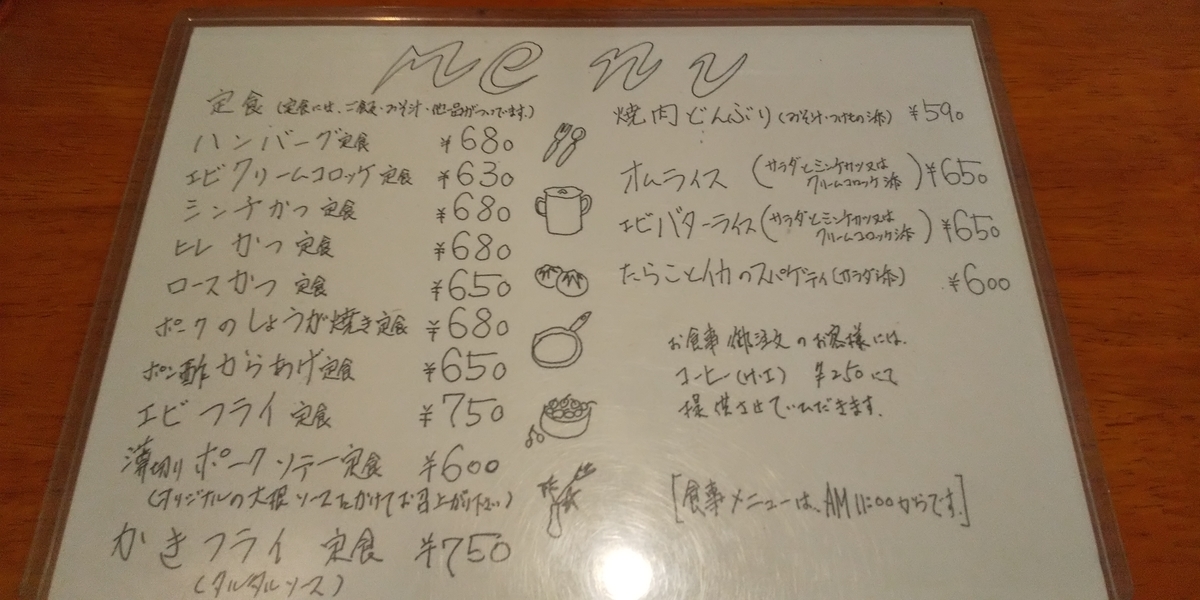 menu
定食 (定食には、ご飯・みそ汁・他一品がついています。)
ハンバーグ定食 ¥680
エビクリームコロッケ定食 ¥630
ミンチかつ定食 ¥680
ヒレかつ定食 ¥680
ロースかつ定食 ¥650
ポークのしょうが焼き定食 ¥680
ポン酢からあげ定食 ¥650
エビフライ定食 ¥750
薄切りポークソテー定食 ¥600
(オリジナルの大根ソースをかけてお召上がり下さい)
かきフライ定食 ¥750
(タルタルソース)
焼肉どんぶり(みそ汁・つけもの添) ¥590
オムライス (サラダとミンチカツ又は
クリームコロッケ添) ¥650
エビバターライス (サラダとミンチカツ又は
クリームコロッケ添) ¥650
たらことイカのスパゲティ(サラダ添) ¥600
お食事御注文のお客様には、
コーヒー(H・I) ¥250にて
提供させていただきます。
[食事メニューは、AM11:00からです。]